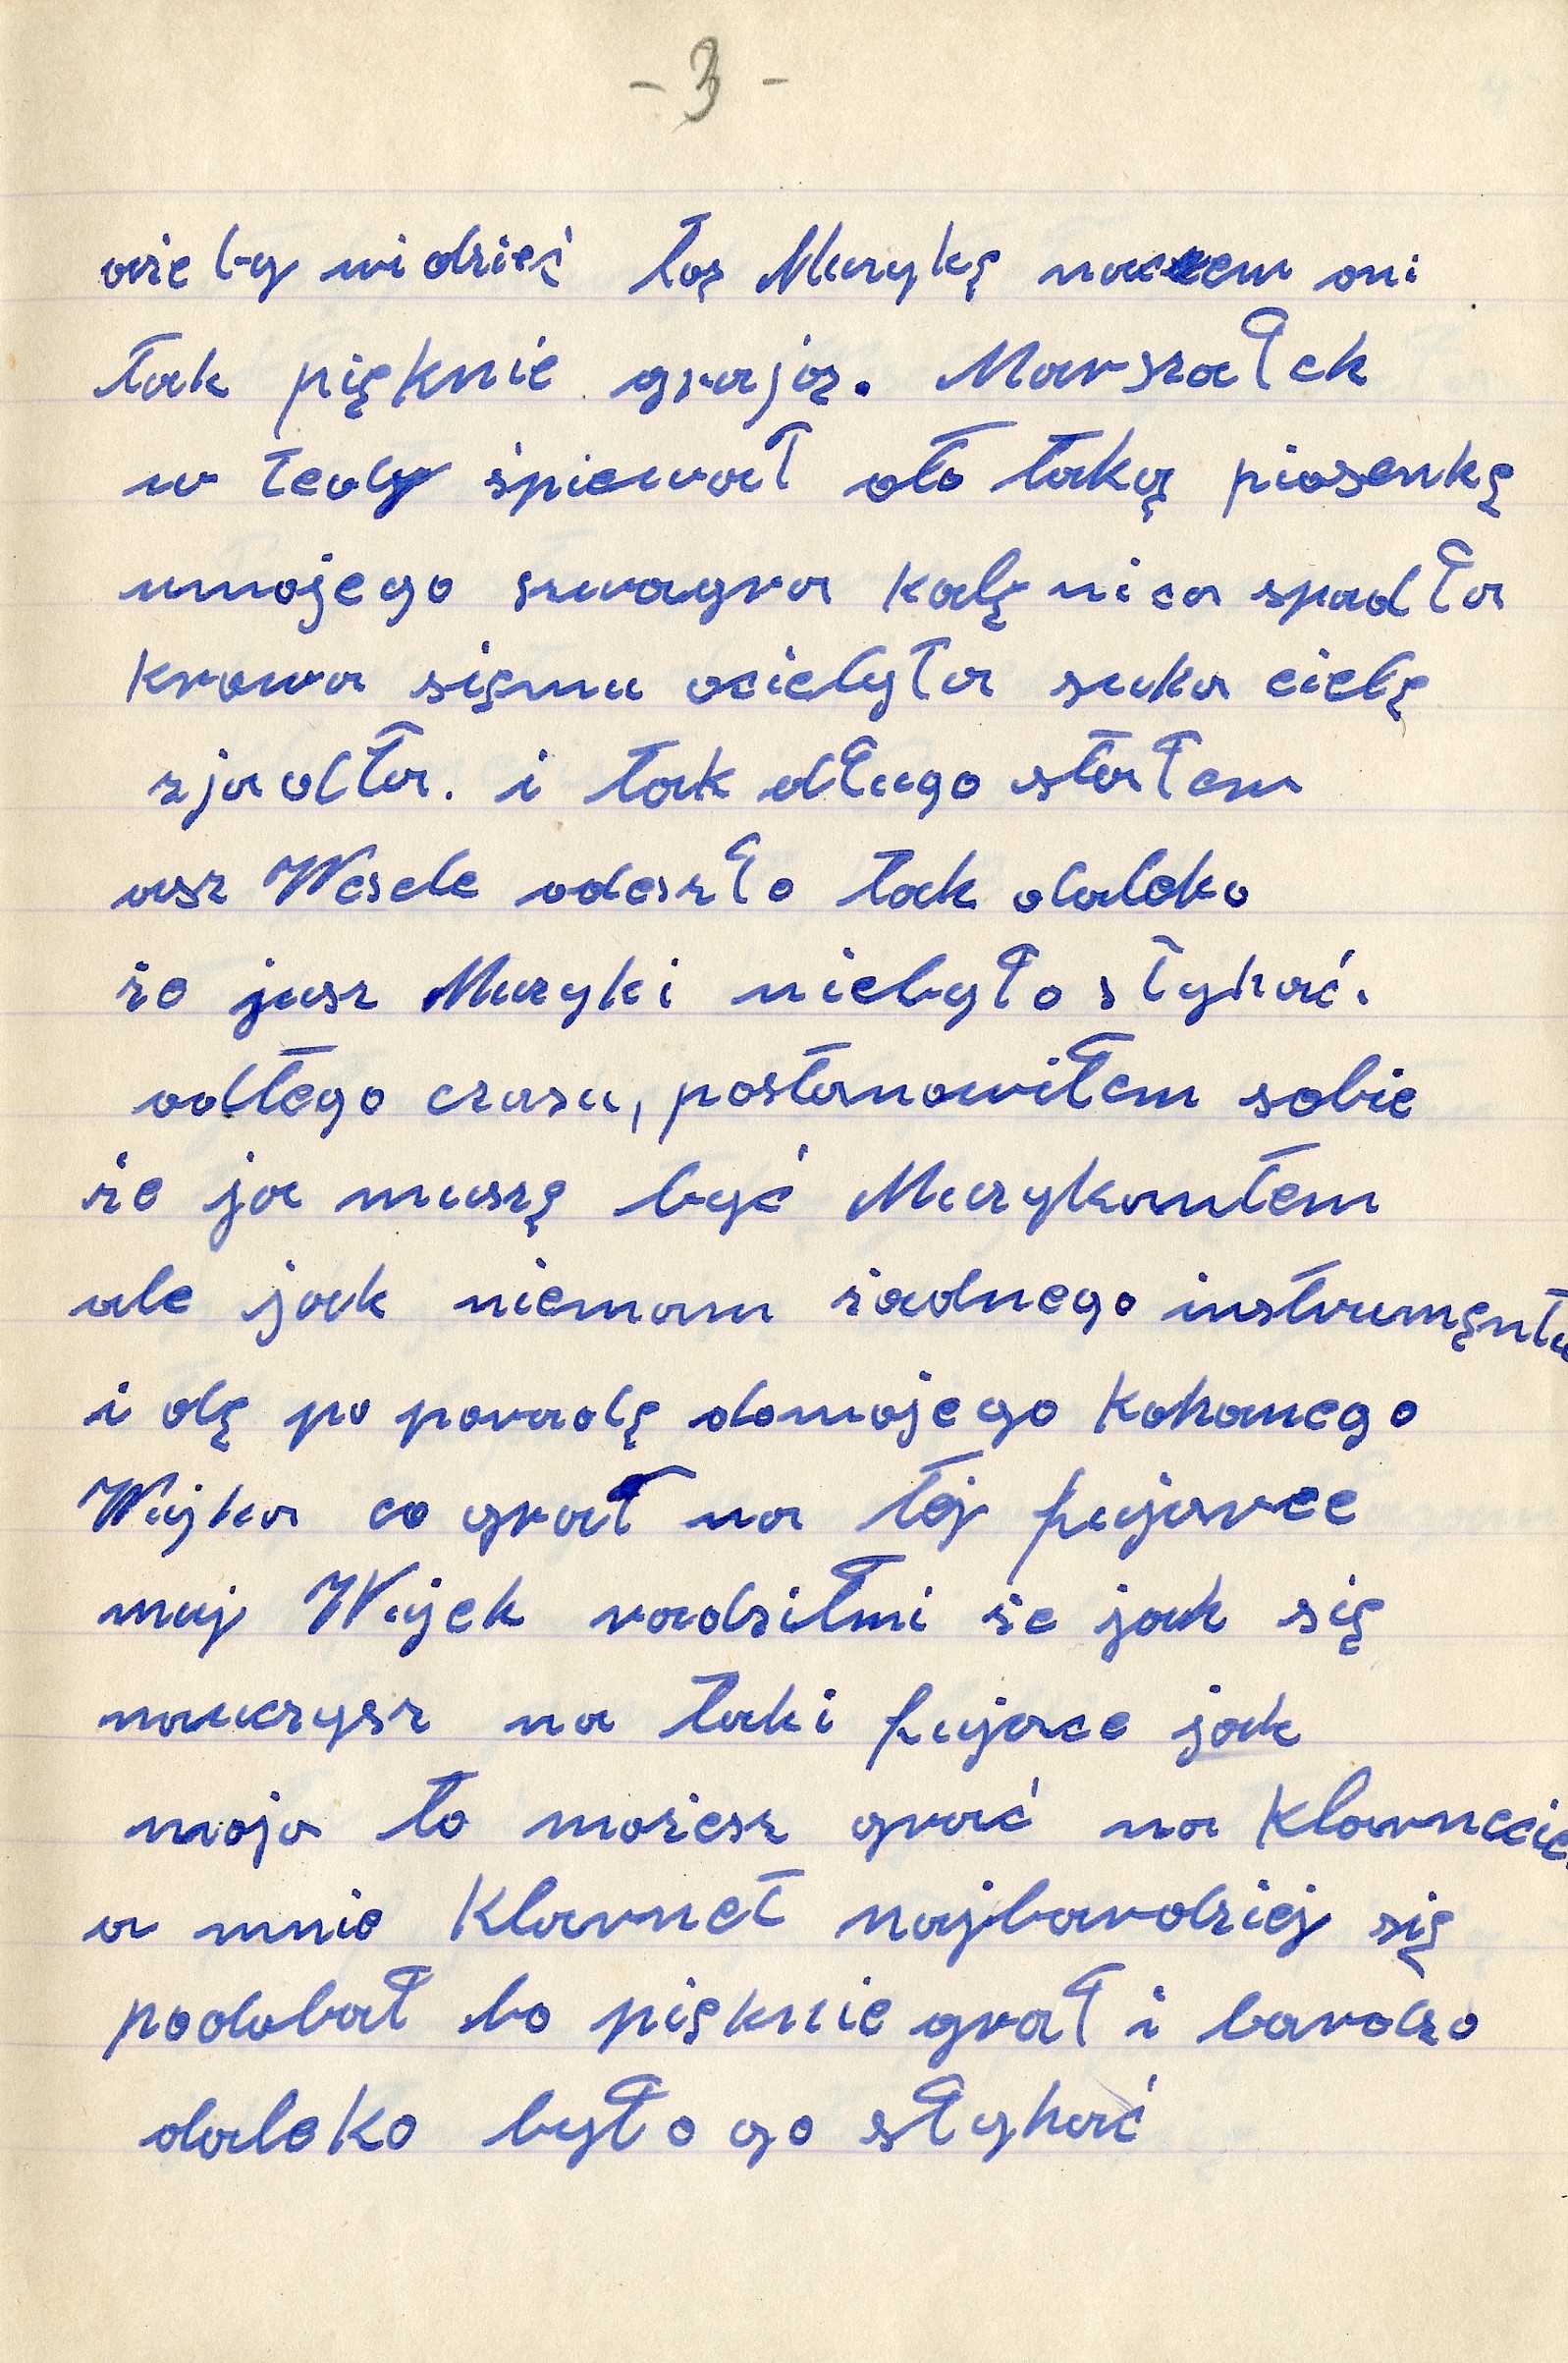 - 3 -
aże by widzieć tą Muzykę naczem oni
tak pięknie grają. Marszałek
w tedy śpiewał oto taką piosenkę
umojego szwagra kalęnica spadła
krowa sięmu ocielyła suka cielę
zjadła. i tak długo stałem
asz Wesele odeszło tak daleko
że jusz Muzyki niebyło słyhać.
odtego czasu, postanowiłem sobie
że ja muszę być Muzykantem
ale jak niemam żadnego instrumęntu
i dę po poradę domojego kohanego
Wujka co grał na tej fujarce
muj Wujek radziłmi że jak się
nauczysz na taki fujarce jak
moja to możesz grać na Klarnecie,
a mnie Klarnet najbardziej się
podobał bo pięknie grał i bardzo
daleko było go słyhać